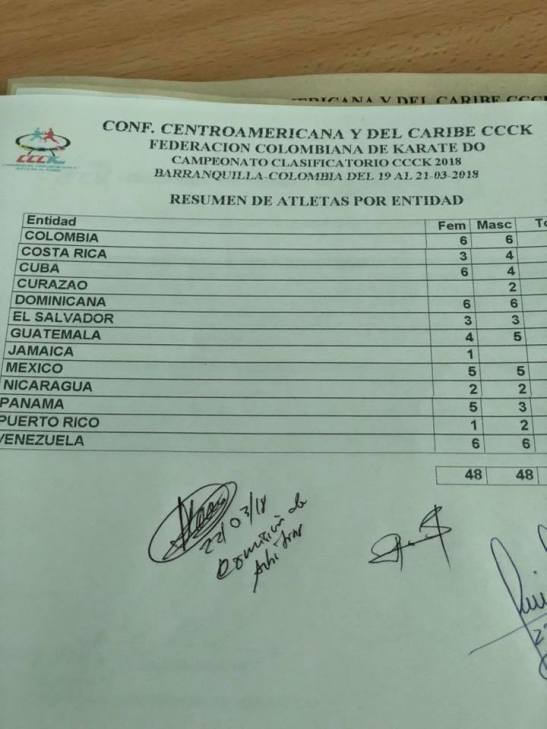 CONF. CENTROAMERICANA Y DEL CARIBE CCCK
FEDERACION COLOMBIANA DE KARATE DO
CAMPEONATO CLASIFICATORIO CCCK 2018
BARRANQUILLA-COLOMBIA DEL 19 AL 21-03-2018
CCCK
RESUMEN DE ATLETAS POR ENTIDAD
Entidad Fem Masc
COLOMBIA 6 6
COSTA RICA 3 4
CUBA 6 4
CURAZAO 2
DOMINICANA 6 6
EL SALVADOR 3 3
GUATEMALA 4 5
JAMAICA 1
MEXICO 5 5
NICARAGUA 2 2
PANAMA 5 3
PUERTO RICO 1 2
VENEZUELA 6 6
48 48
22/03/18
Comisión de